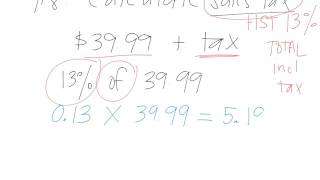 Calculate Sales Tax
HST 13%
$39.99 + tax
TOTAL
incl
tax
13% of 39.99
0.13 X 39.99 = 5.19